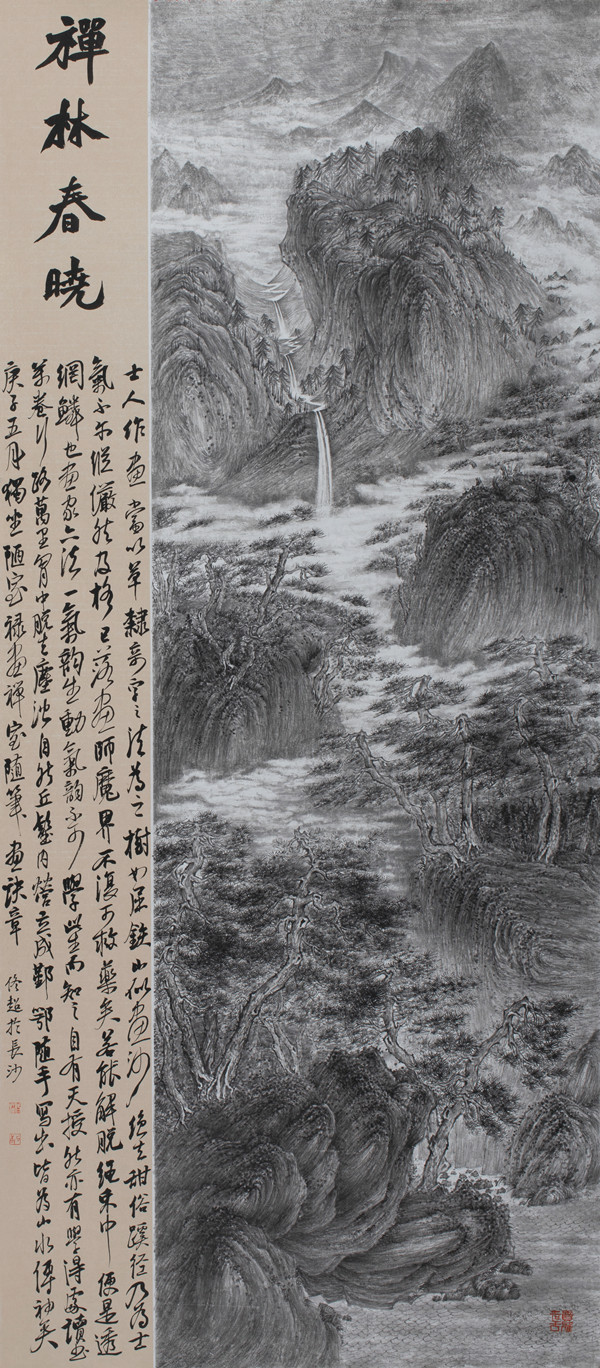 禪林春曉
士人作畫當以草隸奇字之法爲之樹如屈鐵山似畫沙絕去甜俗蹊徑乃爲士
氣不尔縱儼然及格已落畫師魔界不復可救藥矣若能解脫繩束中便是透
網鱗也畫家六法一氣韵生動氣韵不可學此生而知之自有天授然亦有學得處讀書
萬卷行路萬里胷中脫去塵濁自然丘壑內營立成鄞鄂隨手寫出皆爲山水傳神矣
庚子五月獨坐陋室禄畫禪室隨筆畫訣章
修超於長沙